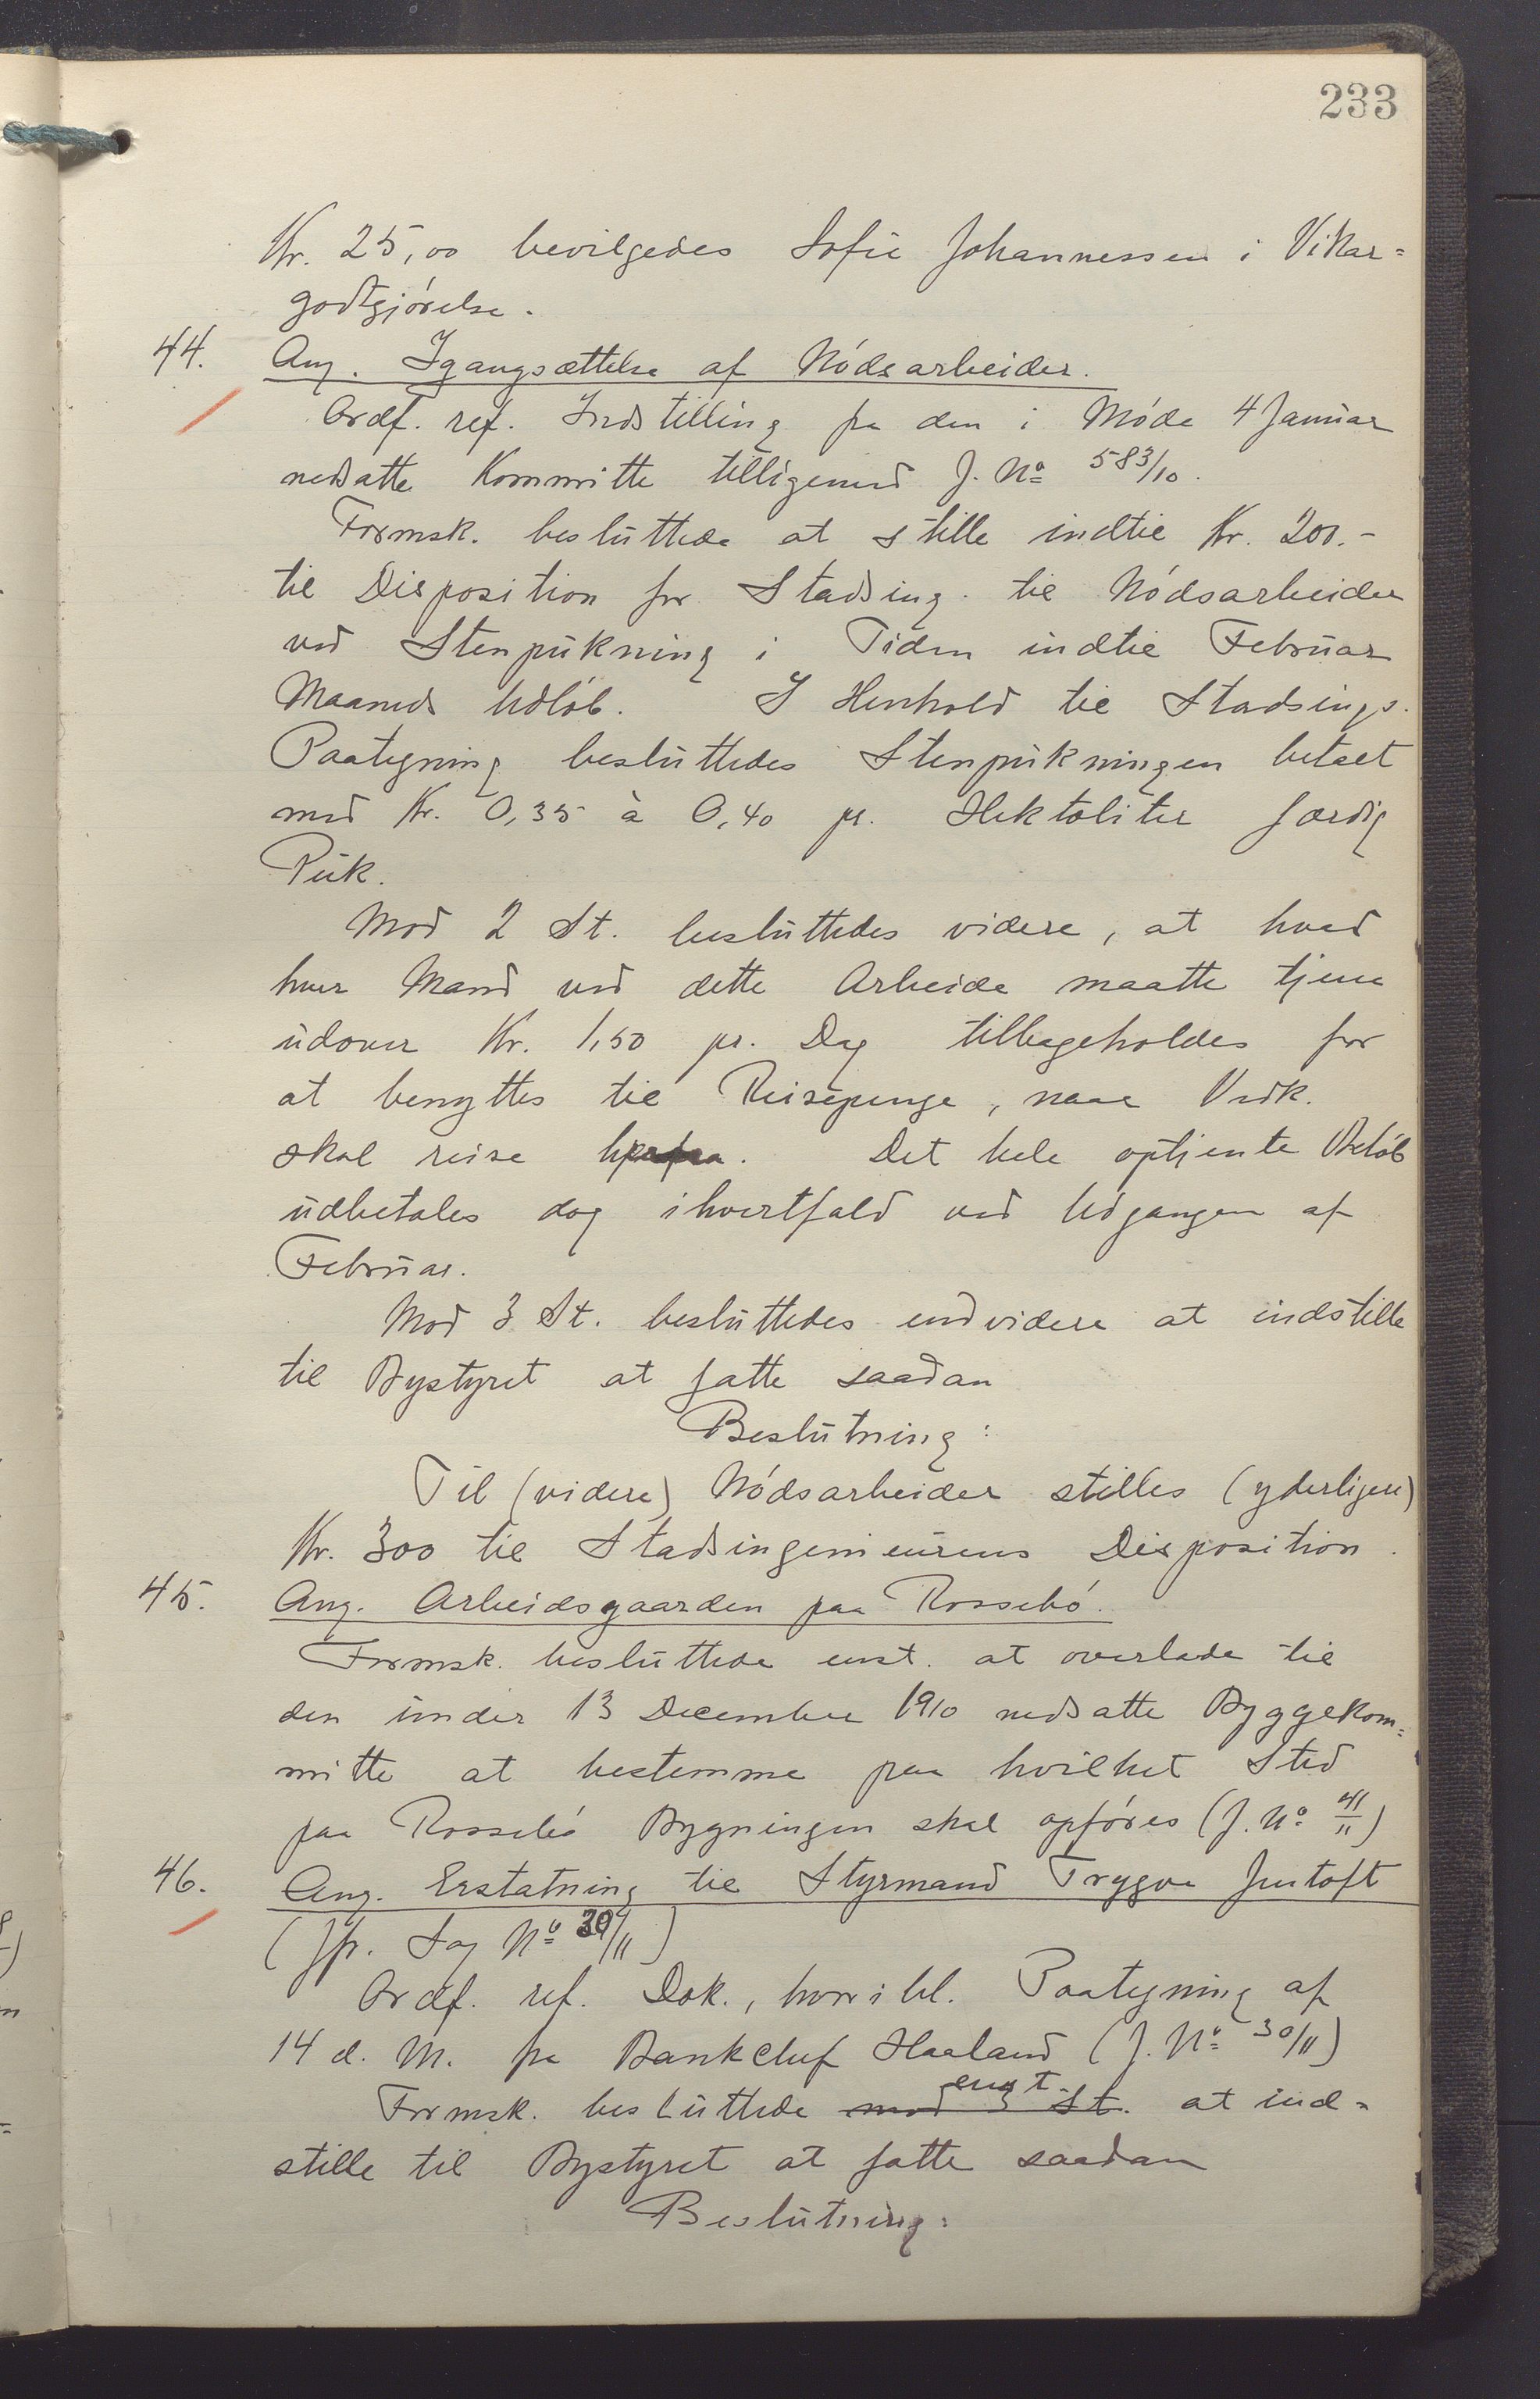 233
Kr. 25,00 bevilgedes Sofie Johannessen i Vikar=
godtgjórelse.
44. Ang. Igangsættelse af Nódsarbeider.
Ordf. ref. Indstilling fra den i Móde 4 Januar
nedsatte Kommitte tilligemed J. No 583/10.
Formsk. besluttede at stille indtil Kr. 200.-
til Disposition for Stadsing. til Nódsarbeider
ved Stenpukning i Tiden indtil Februar
Maaneds Udlób. I Henhold til Stadsings.
Paategning besluttedes Stenpukningen betalt
med Kr. 0,35 à 0,40 pr. Hektoliter færdig
Puk.
Mod 2 St. besluttedes videre, at hvad
hver Mand ved dette Arbeide maatte tjene
udover Kr. 1,50 pr. Dag tilbageholdes for
at benyttes til Reisepenge, naar Vedk.
skal reise herfra. Det hele optjente Belób
udbetales dog ihvertfald ved Udgangen af
Februar.
Mod 3 St. besluttedes endvidere at indstille
til Bystyret at fatte saadan
Beslutning:
Til (videre) Nódsarbeider stilles (yderligere)
Kr. 300 til Stadsingenieurens Disposition.
45. Ang. Arbeidsgaarden paa Rossebó.
Formsk. besluttede enst. at overlade til
den under 13 December 1910 nedsatte Byggekom=
mitte at bestemme paa hvilket Sted
paa Rossebó Bygningen skal opfóres (J. No 41/11)
46. Ang. Erstatning til Styrmand Trygve Jentoft
(Jfr. Sag No 30/11)
Ordf. ref. Dok., hvori bl. Paategning af
14 d. M. fra Bankchef Haaland (J. No 30/11)
enst.
Formsk. besluttede mod 3 St. at ind=
stille til Bystyret at fatte saadan
Beslutning: